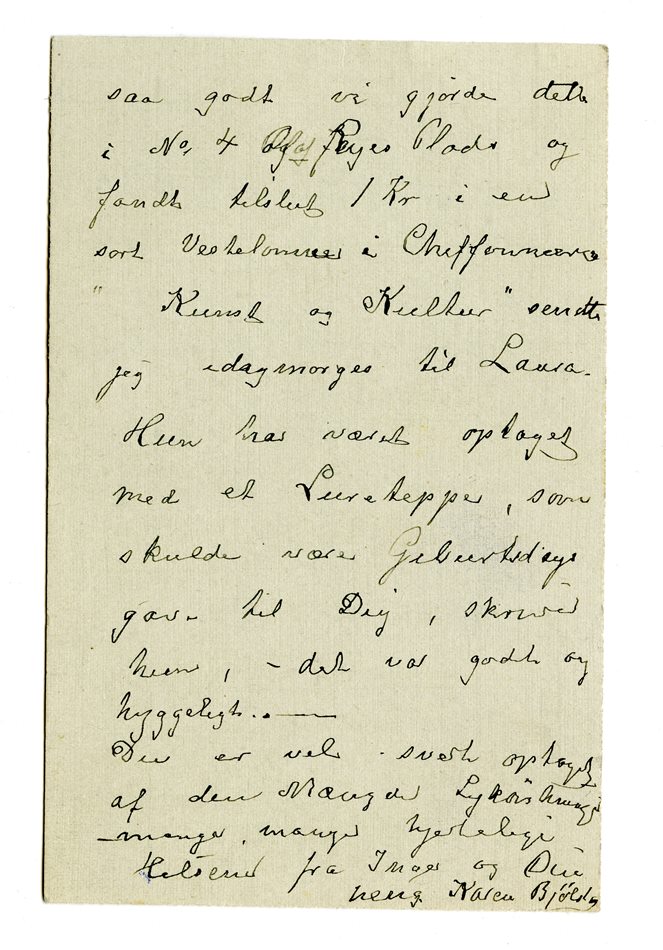 saa godt vi gjorde dette
i No. 4 Olaf Ryes Plads og
fandt tilslut 1 Kr i en
sort Vestelomme i Chiffonnieren
" Kunst og Kultur" sendte
jeg idagmorges til Laura.
Hun har været optaget
med et Luretæppe, som
skulde være Geburtsdags
gave til Dig, skriver
hun, – det var godt og
hyggeligt. —
Du er vel svært optaget
af den Mængde
– mange, mange hjertelige
Hilsener fra Inger og Din
heng. Karen Bjölstad